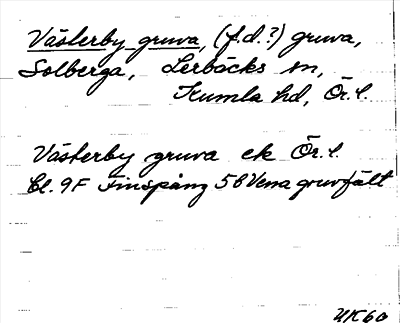 Västerby gruva, (f.d.?) gruva,
Solberga, Lerbäcks sn,
Kumla hd, Ör. l.
Västerby gruva ek Ör. l.
bl. 9F Finspång 5b Vena gruvfält
UK60